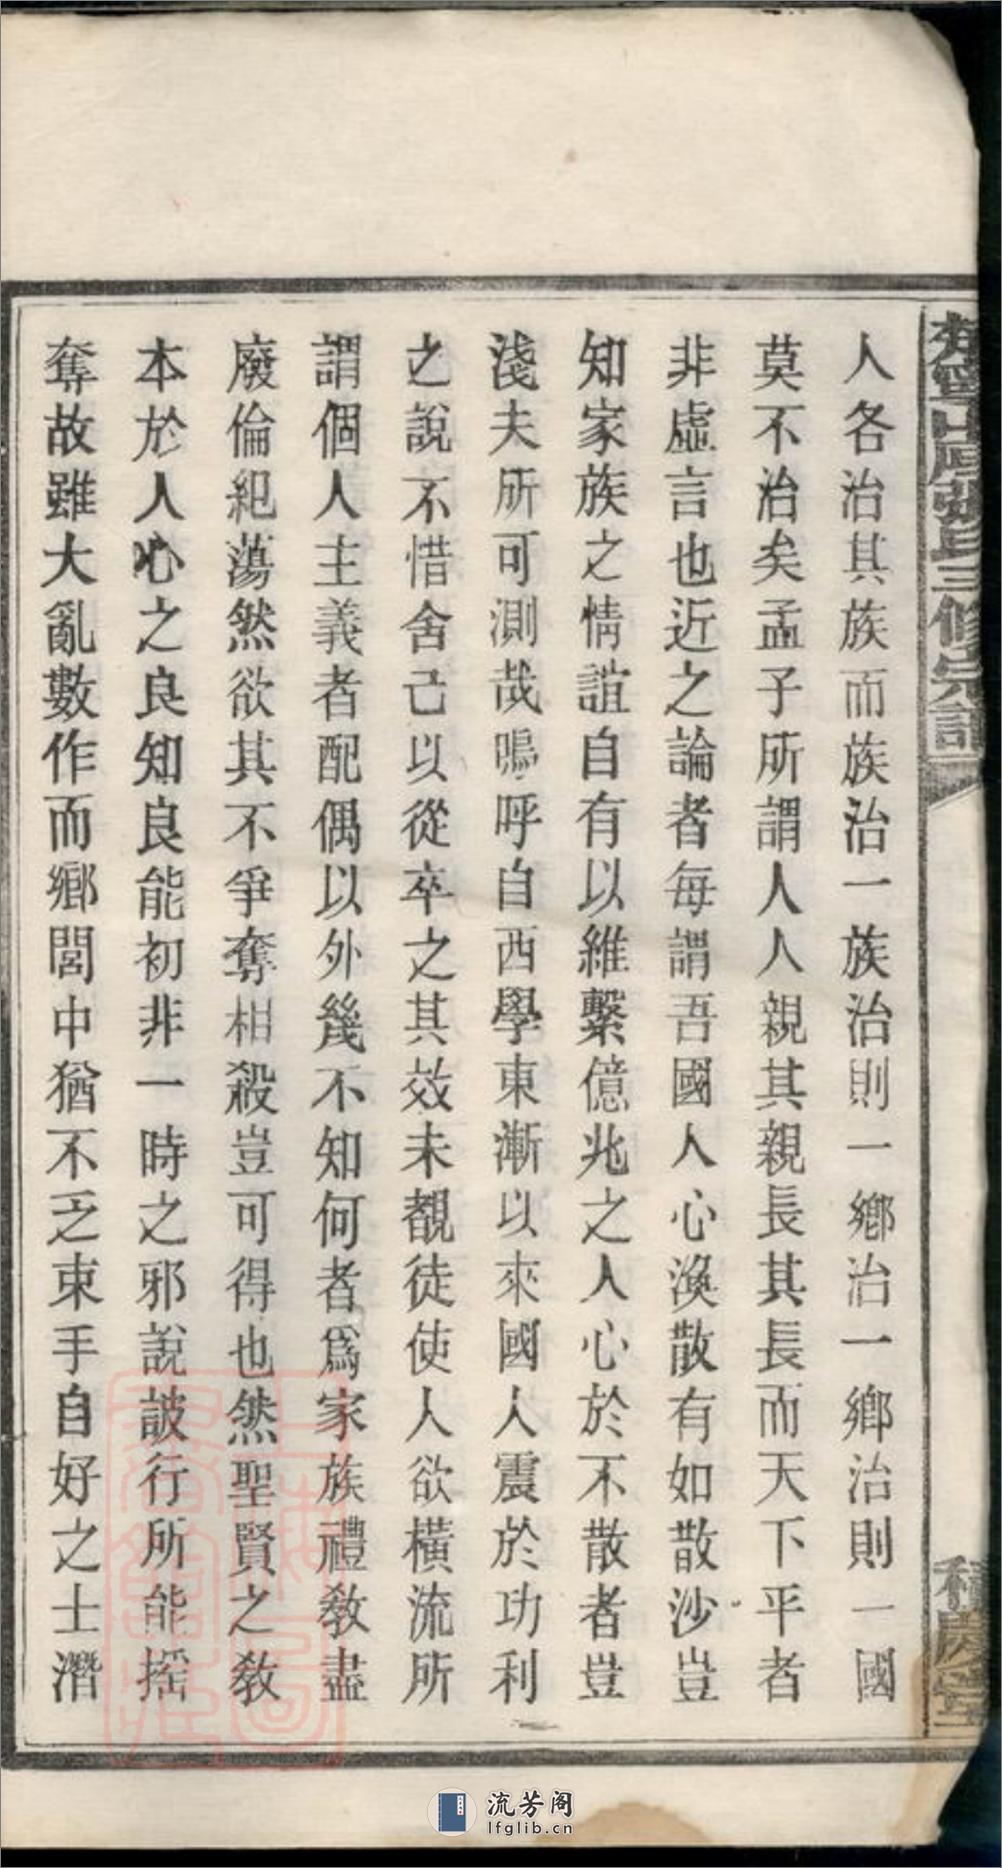 人各治其族而族治一族治則一鄉治一鄉治則一國
莫不治矣孟子所謂人人親其親長其長而天下平者
非虛言也近之論者每謂吾國人心渙散有如散沙豈
知家族之情誼自有以維繫億兆之人心於不散者豈
淺夫所可測哉嗚呼自西學東漸以來國人震於功利
之說不惜舍己以從卒之其效未覩徒使人欲橫流所
謂個人主義者配偶以外幾不知何者爲家族禮教盡
廢倫紀蕩然欲其不爭奪相殺豈可得也然聖賢之教
本於人心之良知良能初非一時之邪說詖行所能搖
奪故雖大亂數作而鄉閭中猶不乏束手自好之士潛
張氏三修宗譜
流芳阁
lfglib.cn